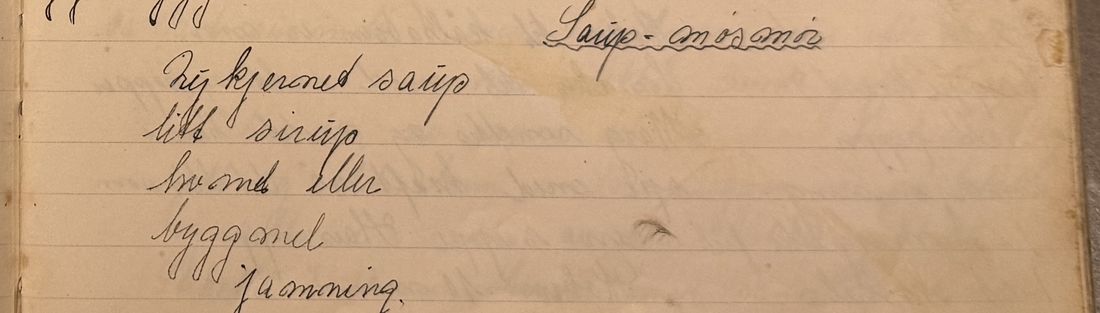 Saup-møsmør
Nykjernet saup
litt sirup
eller
byggmel
jamning.